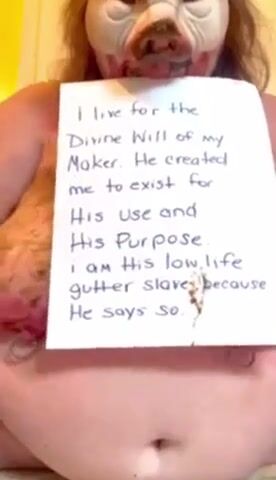 I live for the
Divine Will of my
Maker. He created
me to exist for
His use and
His Purpose.
i am His low life
gutter slave because
He says so.